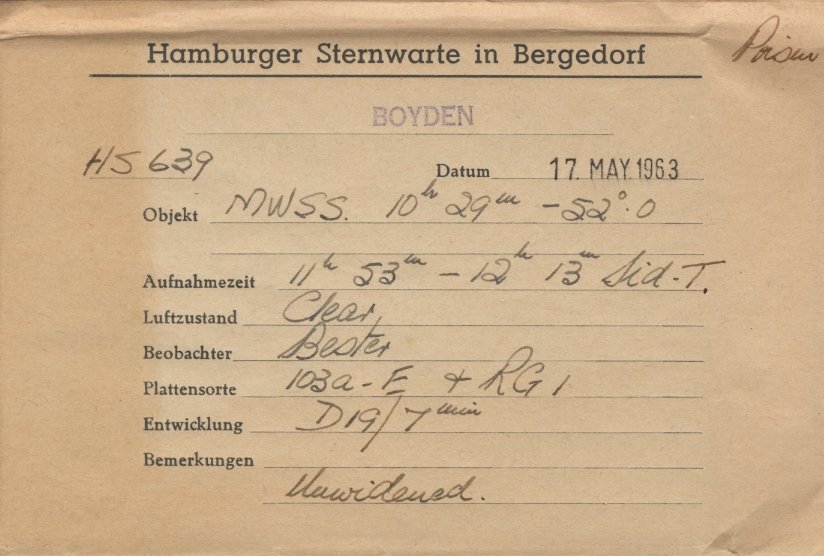 Hamburger Sternwarte in Bergedorf
BOYDEN
HS 639
Datum 17. MAY. 1963
Objekt MWSS. 10h 29m -52°.0
Aufnahmezeit 11h 53m - 12h 13m Sid-T.
Luftzustand Clear,
Beobachter Bester
Plattensorte 103a-E + RG 1
Entwicklung D19/7min
Bemerkungen
Unwidened.